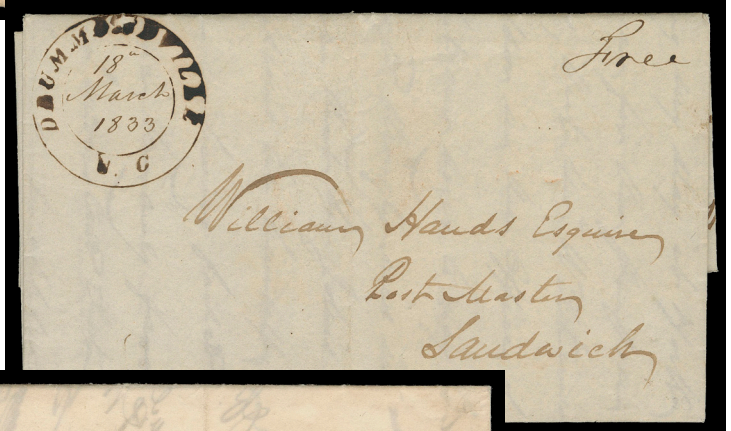 DRUMMONDVILLE
18th
March
1833
U. C
Free
William Hands Esquire
Post Master
Sandwich